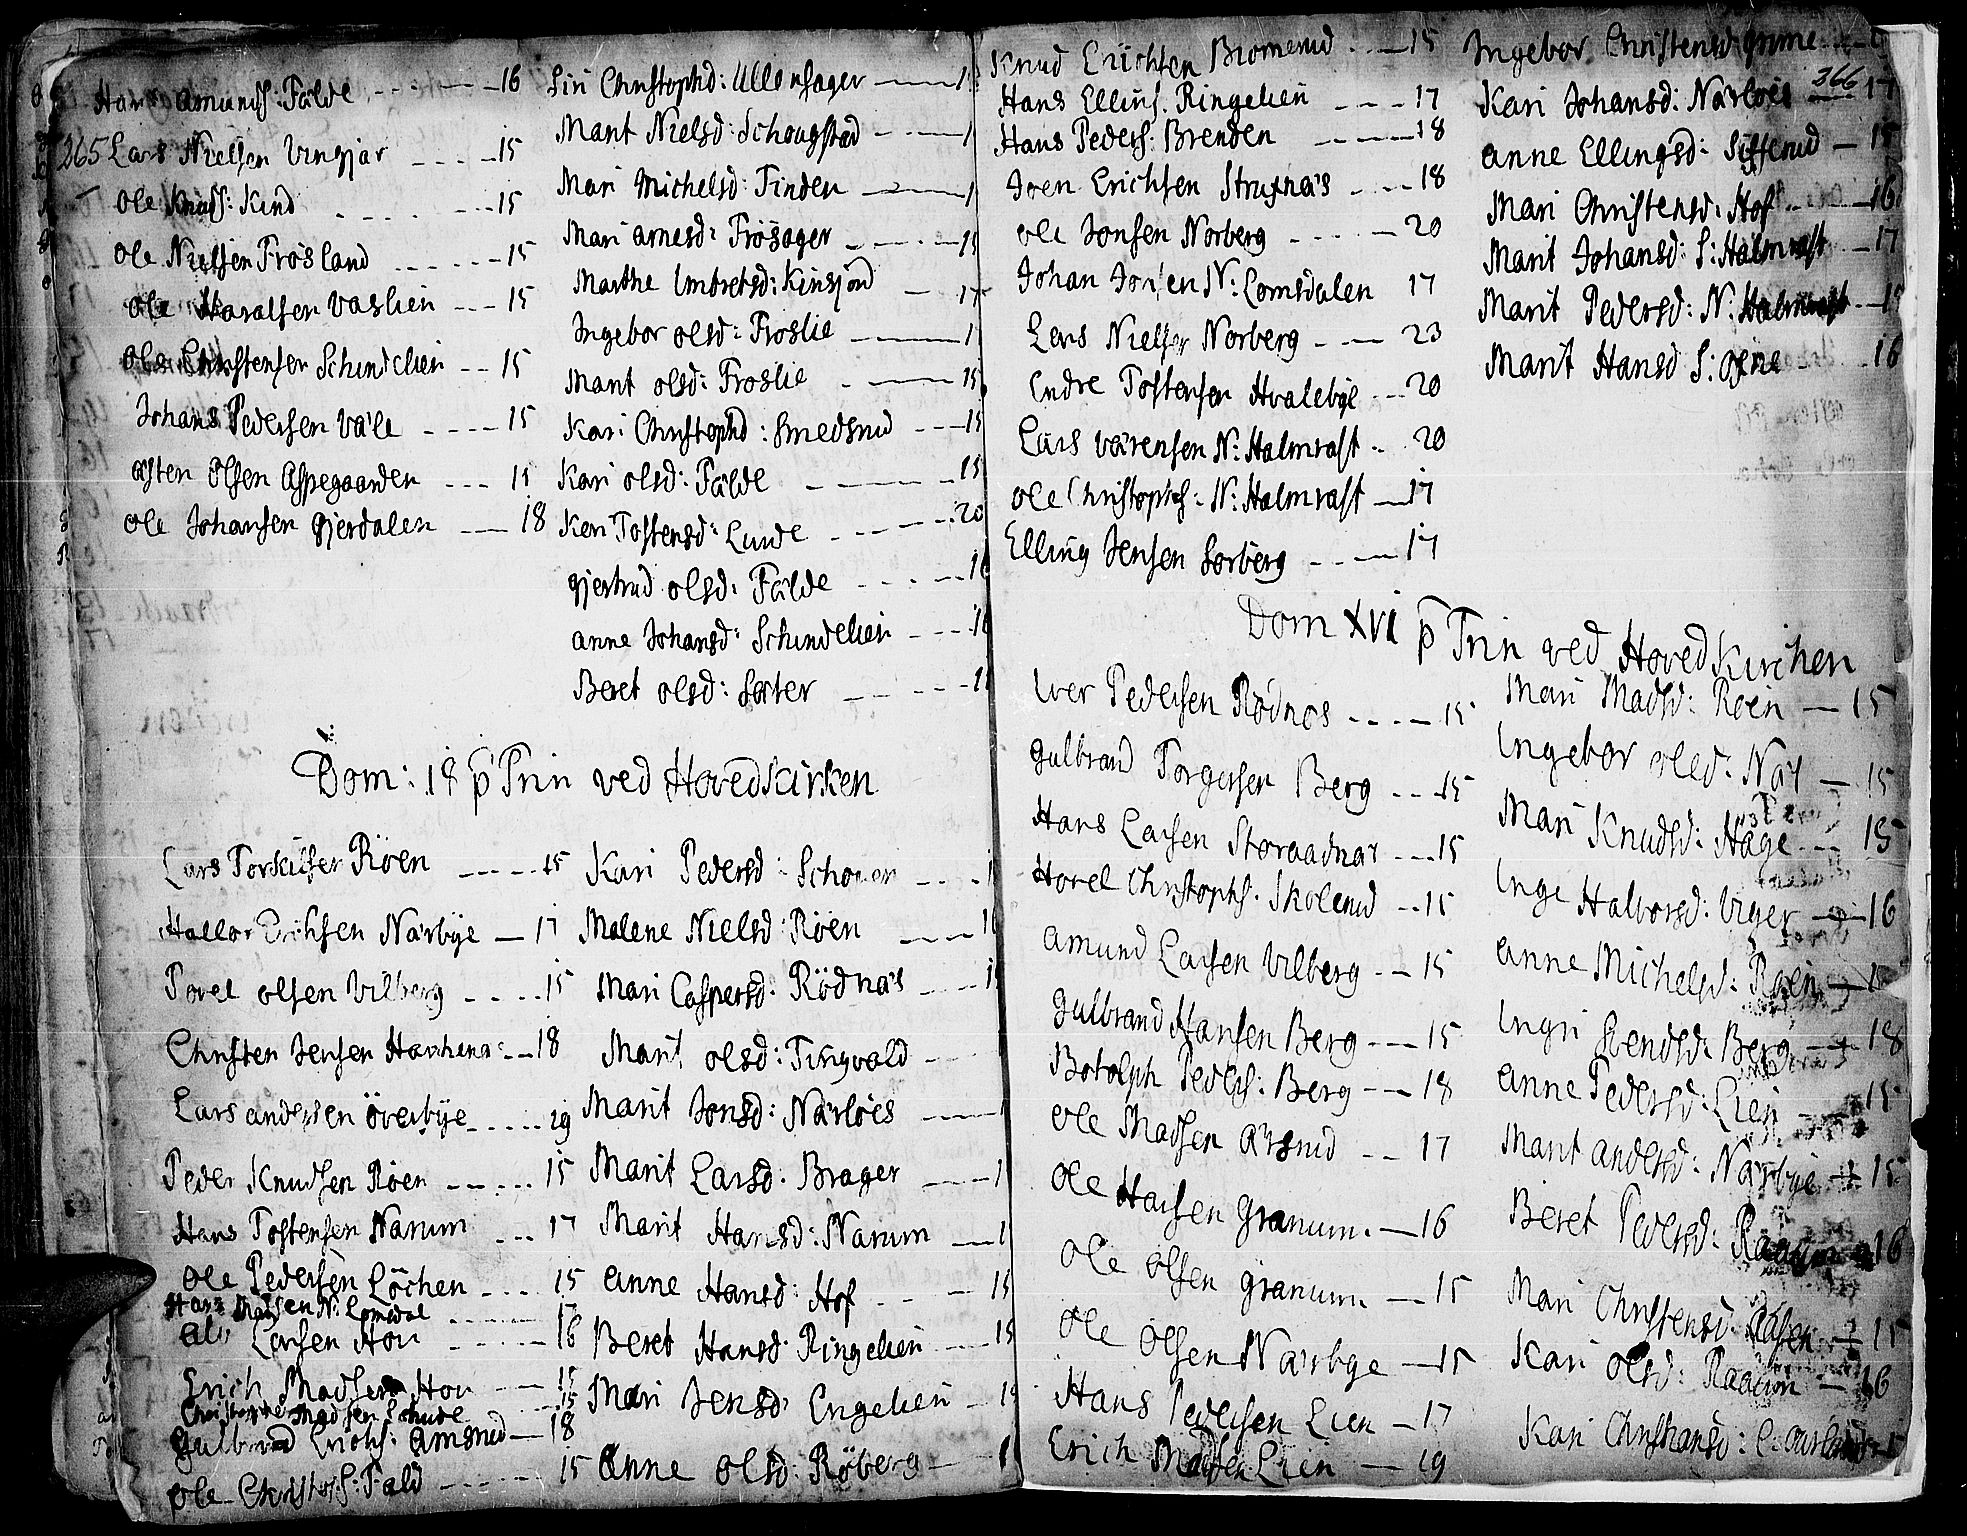 Hans Amunds: Fälde 16
265 Lars Nielsen Vingjar 15
Ole Knuds: Kind 15
Ole Nielsen Frösland 15
Ole Haralsen Vaslien 15
Ole Christensen Schindelien 15
Johans Pedersen Väle 15
Asten Olsen Aspegaarden 15
Ole Johansen Gjerdalen 18
Siri Christophd: Ullensager
Marit Nielsd: Schougstad
Mari Michelsd: Finden
Mari Arnesd: Frösager
Marthe Embretsd: Kinsjord 17
Ingebor Olsd: Froslie
Marit Olsd: Froslie 15
Kari Christophd: Smedsrud 15
Kari Olsd: Fälde 15
Kari Tostensd: Lunde 20
Gjertrud Olsd: Fälde
Anne Johansd: Schindelien
Beret Olsd: Sörter
Dom: 18 p Trin ved Hovedkirken
Lars Torkilsen Röen 15
Hallor Erichsen Narbye 17
Povel Olsen Vilberg 15
Christen Jensen 18
Lars Andersen Överbye 29
Peder Knudsen Röen 15
Hans Tostensen Narum 17
Ole Pedersen Löchen 15
Hans Madsen N: Lomdal
Ole Larsen Hou 16
Erich Madsen Hou 15
Christopher Madsen Schude 15
Gulbrand Erichs: Amsrud 18
Ole Christophs: Fald 15
Kari Pedersd: Schouen
Malene Nielsd: Röen
Mari Caspersd: Rödnäs
Marit Olsd: Tingvold
Marit Jonsd: Närloes
Marit Larsd: Brager
Marit Hansd: Narum
Anne Hansd: Hof 15
Beret Hansd: Ringelien 15
Mari Jensd: Engelien
Anne Olsd: Röberg
Knud Erichsen Bromerud 15
Hans Ellins: Ringelien 17
Hans Peders: Brenden 18
Iven Erichsen Struxnäs 18
Ole Jonsen Norberg 20
Johan Jonsen N: Lomsdalen 17
Lars Nielsen Norberg 23
Endre Tostensen Hvalebye 20
Lars Värensen N: Halmrast 20
Ole Christophs: N: Halmrast 17
Elling Jensen Sorberg 17
Ingebor Christensd: Grime
366
Kari Johansd: Närloes 17
Anne Ellingsd: Sifferud 15
Mari Christensd: Hof 16
Marit Johansd: S: Halmrast 17
Marit Pedersd: N: Halmrast
Marit Hansd: S: Ojne 16
Dom XVI p Trin ved Hovedkirchen
Iver Pedersen Rödnes 15
Gulbrand Torgersen Berg 15
Hans Larsen Storaadnar 15
Hovel Christophs: Skolerud 15
Amund Larsen Vilberg 15
Gulbrand Hansen Berg 15
Botolph Peders: Berg 18
Ole Madsen Årsrud 17
Ole Hansen Granum 16
Ole Olsen Granum 15
Ole Olsen Narbye 15
Hans Pedersen Lien 17
Erich Madsen Lien 19
Mari Madsd: Röen 15
Ingebor Olsd: När 15
Mari Knudsd: Hage 15
Inge Halvorsd: Viger 16
Anne Michelsd: Roen
Ingri Svendsd: Berg 18
Anne Pedersd: Lien 15
Marit Andersd: Narbye 15
Beret Pedersd: Raaum 16
Mari Christensd: 15
Kari Olsd: Raaum 16
Kari Christiansd: